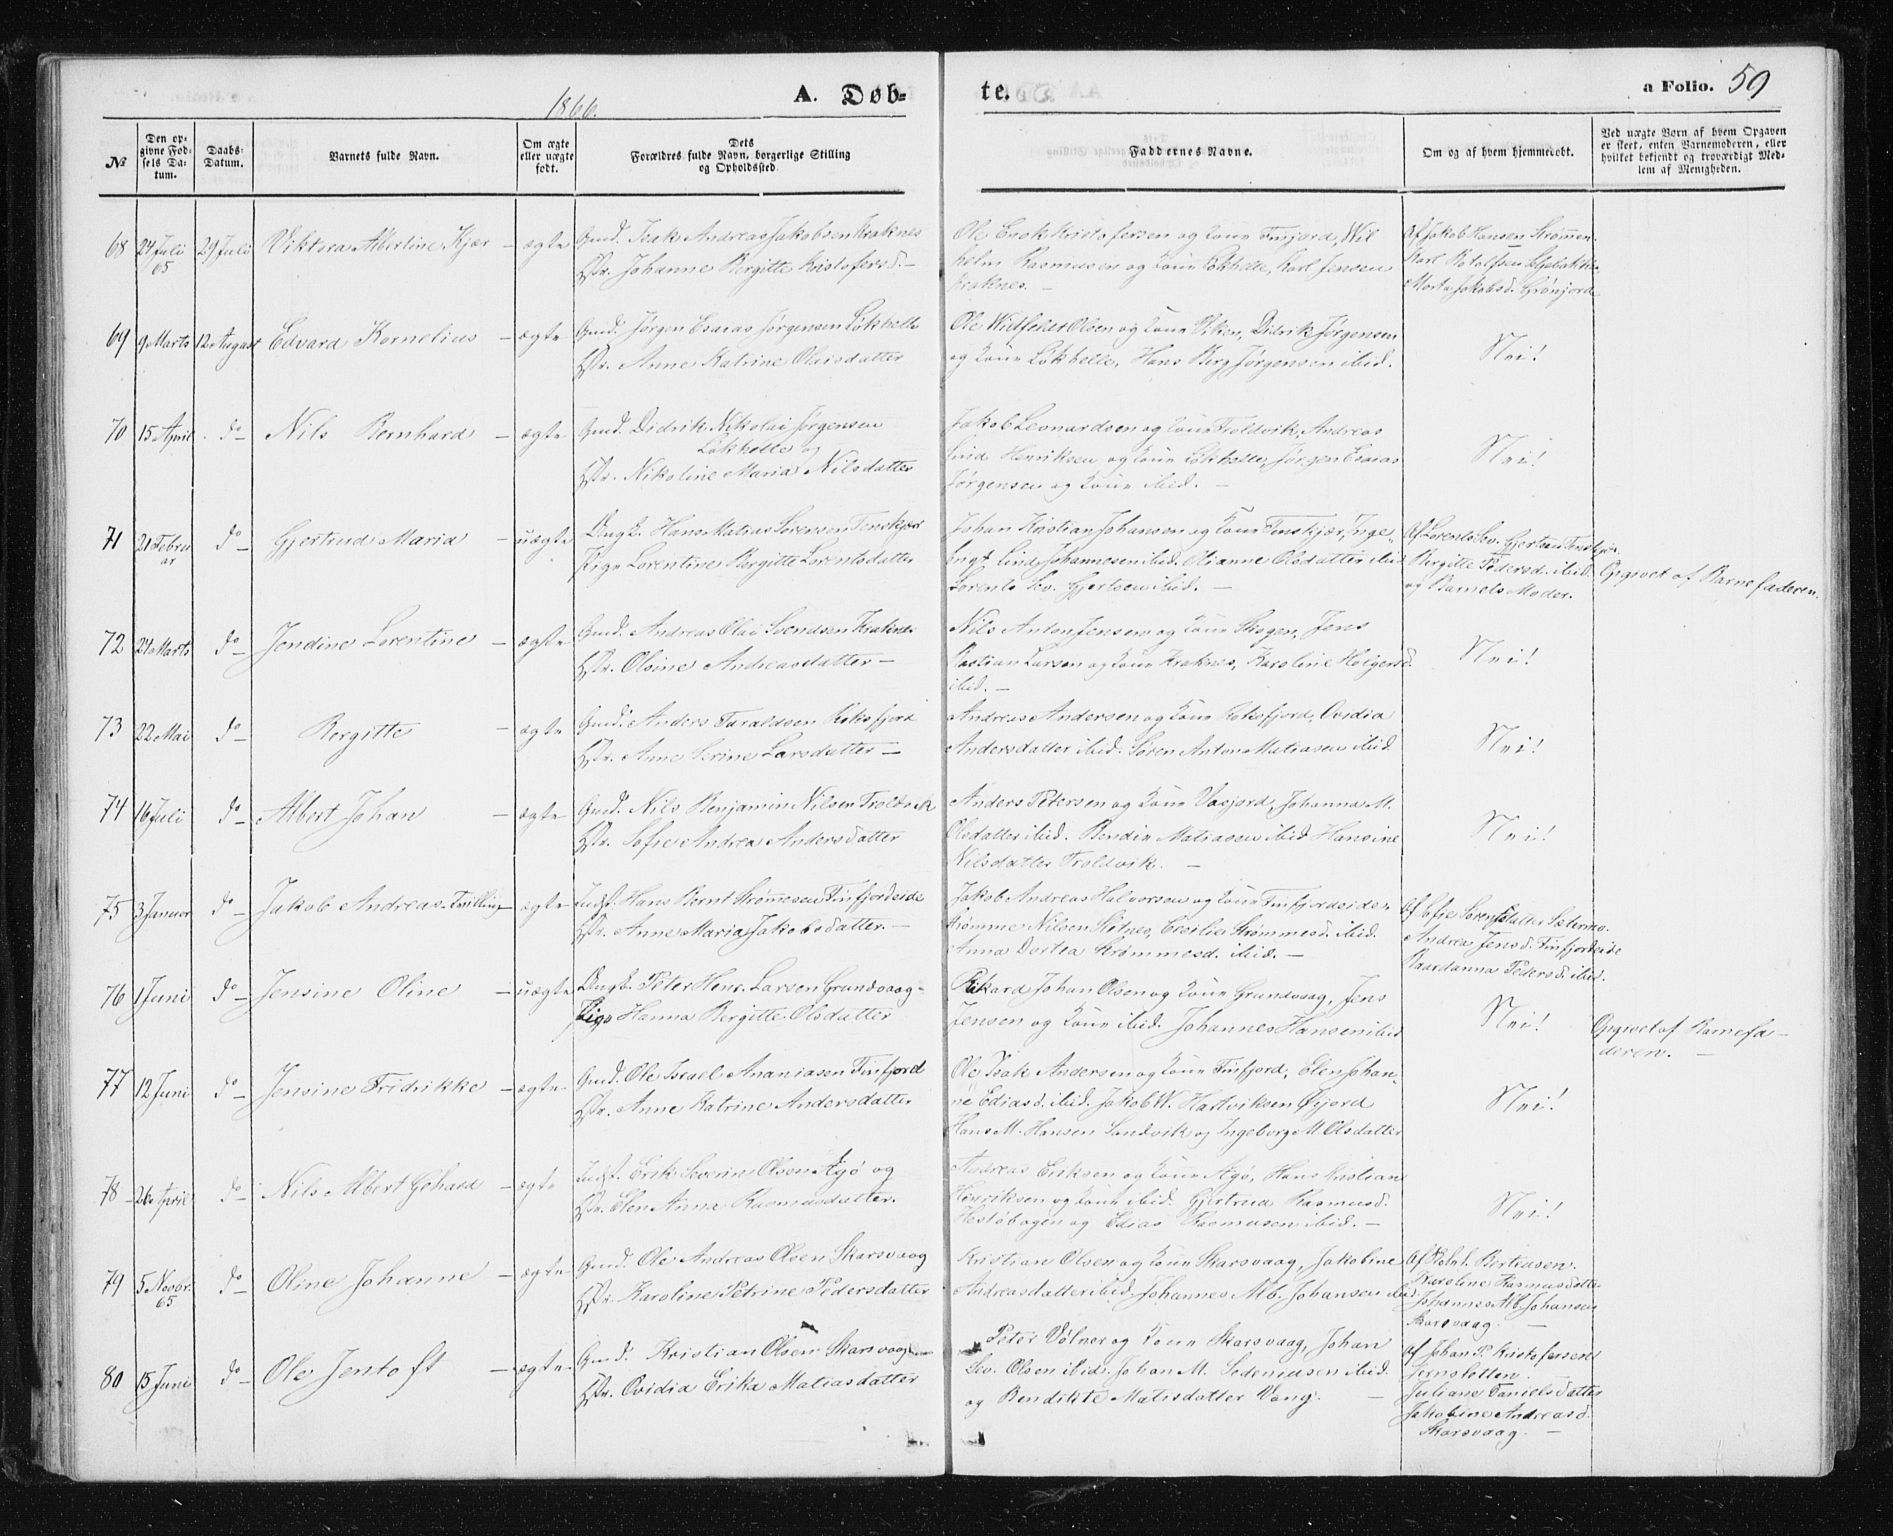 1866.
A. Døb-
te.
a Folio. 59
№
Den op-
givne Fød-
sels Da-
tum.
Daabs-
Datum.
Barnets fulde Navn.
Om ægte
eller uægte
født.
Dets
Forældres fulde Navn, borgerlige Stilling
og Opholdssted.
Faddernes Navne.
Om og af hvem hjemmedøbt.
Ved uægte Børn af hvem Opgaven
er skeet, enten Barnemoderen, eller
hvilket bekjendt og troværdigt Med-
lem af Menigheden.
68 24 Juli 65 29 Juli Viktora Albertine Kjær - ægte
Gmd. Isak Andreas Jakobsen Kraknes
Hstr. Johanne Bergitte Kristofersd. -
Ole Enok Kristofersen og Kone Finfjord, Wil
helm Rasmussen og Kone Løkhelle, Karl Jensen
Kraknes. -
Af Jakob Hansen Strømmen.
Marta Jakobsd. Grønjord
69 9 Marts 12 August Edvard Kornelius - ægte
Gmd. Jørgen Esaias Jørgensen Løkhelle
Hstr. Anne Katrine Olaisdatter
Ole Olsen og Kone Viken, Didrik Jørgensen
og Kone Løkhelle, Hans Berg Jørgensen ibid.
Nei!
70 15 April do - Nils Bernhard - ægte
Gmd. Didrik Nikolai Jørgensen
Løkhelle og
Hstr. Nikoline Maria Nilsdatter
Jakob Leonardsen og Kone Troldvik, Andreas
Lind Henriksen og Kone Løkhelle, Jørgen Esaias
Jørgensen og Kone ibid. -
Nei!
71 21 Febru
ar do - Gjertrud Maria - uægte
Ungk. Hans Matias Sørensen Finskjær
Pige Lorentine Bergitte Lorentsdatter
Johan Kristian Johansen og Kone Finskjær, Inge-
brigt Lind Johannesen ibid. Olianne Olsdatter ibid
Lorents Sev. Gjertsen ibid. -
Af Lorents Sev. Gjertsen Finskjær
Bergitte Pedersd. ibid.
og Barnets Moder.
Opgivet af Barnefaderen.
72 24 Marts do - Jendine Lorentine - ægte
Gmd. Andreas Olai Svendsen Kraknes
Hstr. Olsine Andreasdatter -
Nils Anton Jensen og Kone Skogen, Jens
Bastian Larsen og Kone Kraknes, Karoline Holgersd.
ibid. -
Nei!
73 22 Mai do - Bergitte - ægte
Gmd. Anders Taraldsen Røksfjord
Hstr. Anne Serine Larsdatter -
Andreas Andersen og Kone Roksfjord, Ovidia
Andersdatter ibid. Søren Anton Matiasen ibid
Nei!
74 16 Juli do - Albert Johan - ægte
Gmd. Nils Benjamin Nilsen Troldvik
Hstr. Sofie Andrea Andersdatter
Anders Petersen og Kone Vasjord, Johanna M.
Olsdatter ibid. Bendix Matiasen ibid Hansine
Nilsdatter Troldvik. -
Nei!
75 3 Januar do - Jakob Andreas - Tvilling - ægte
Indst. Hans Bernt Strømmesen Finfjordeide
Hstr. Anne Maria Jakobsdatter. -
Jakob Andreas Halvorsen og Kone Finfjordeide,
Strømme Nilsen Slitnes, Cecilie Strømmesd. ibid.
Anna Dortea Strømmesd. ibid. -
Af Sofie Sørensdatter Sætermo.
Andrea Jensd. Finfjordeide
Baardanna Pedersd. ibid.
76 1 Juni do - Jensine Oline - uægte
Ungk. Peter Henr. Larsen Grundvaag -
Pige Hanna Bergitte Olsdatter
Rikard Johan Olsen og Kone Grundvaag, Jens
Jensen og Kone ibid. Johannes Hansen ibid
Nei!
Opgivet af Barnefa-
deren. -
77 12 Juni do - Jensine Fridrikke - ægte
Gmd. Ole Israel Ananiasen Finfjord
Hstr. Anne Katrine Andersdatter
Ole Isak Andersen og Kone Finfjord, Elen Johan-
ne Ediasd. ibid. Jakob W. Hartviksen Øijord
Hans M. Hansen Sandvik og Ingeborg M. Olsdatter
Nei!
78 26 April do - Nils Albert Gehard - ægte
Indst. Erik Severin Olsen Agø og
Hstr. Elen Anna Rasmusdatter.
Andreas Eriksen og Kone Agø, Hans Kristian
Henriksen og Kone ibid. Gjertrud Rasmusd.
Hestebogen og Edias Rasmusen ibid. -
Nei!
79 5 Novbr. 65 do - Oline Johanne - ægte
Gmd. Ole Andreas Olsen Skarsvaag
Hstr. Karoline Petrine Pedersdatter
Kristian Olsen og Kone Skarsvaag, Jakobine
Andreasdatter ibid. Johannes Mb. Johansen ibid.
Karoline Rasmusdatter
Johannes Mb. Johansen
Skarsvaag. -
80 15 Juni do - Ole Jentoft - ægte
Gmd. Kristian Olsen Skarsvaag -
Hstr. Ovidia Erika Matiasdatter
Peter Vølner og Kone Skarsvaag, Johan
Sev. Olsen ibid. Johan M. Sedeniusen ibid
og Bendikte Matisdatter Vang. -
Af Johan P. Kristofersen
Jernsletten. -
Juliane Danielsdatter
Jakobine Andreasd.
Skarsvaag. -